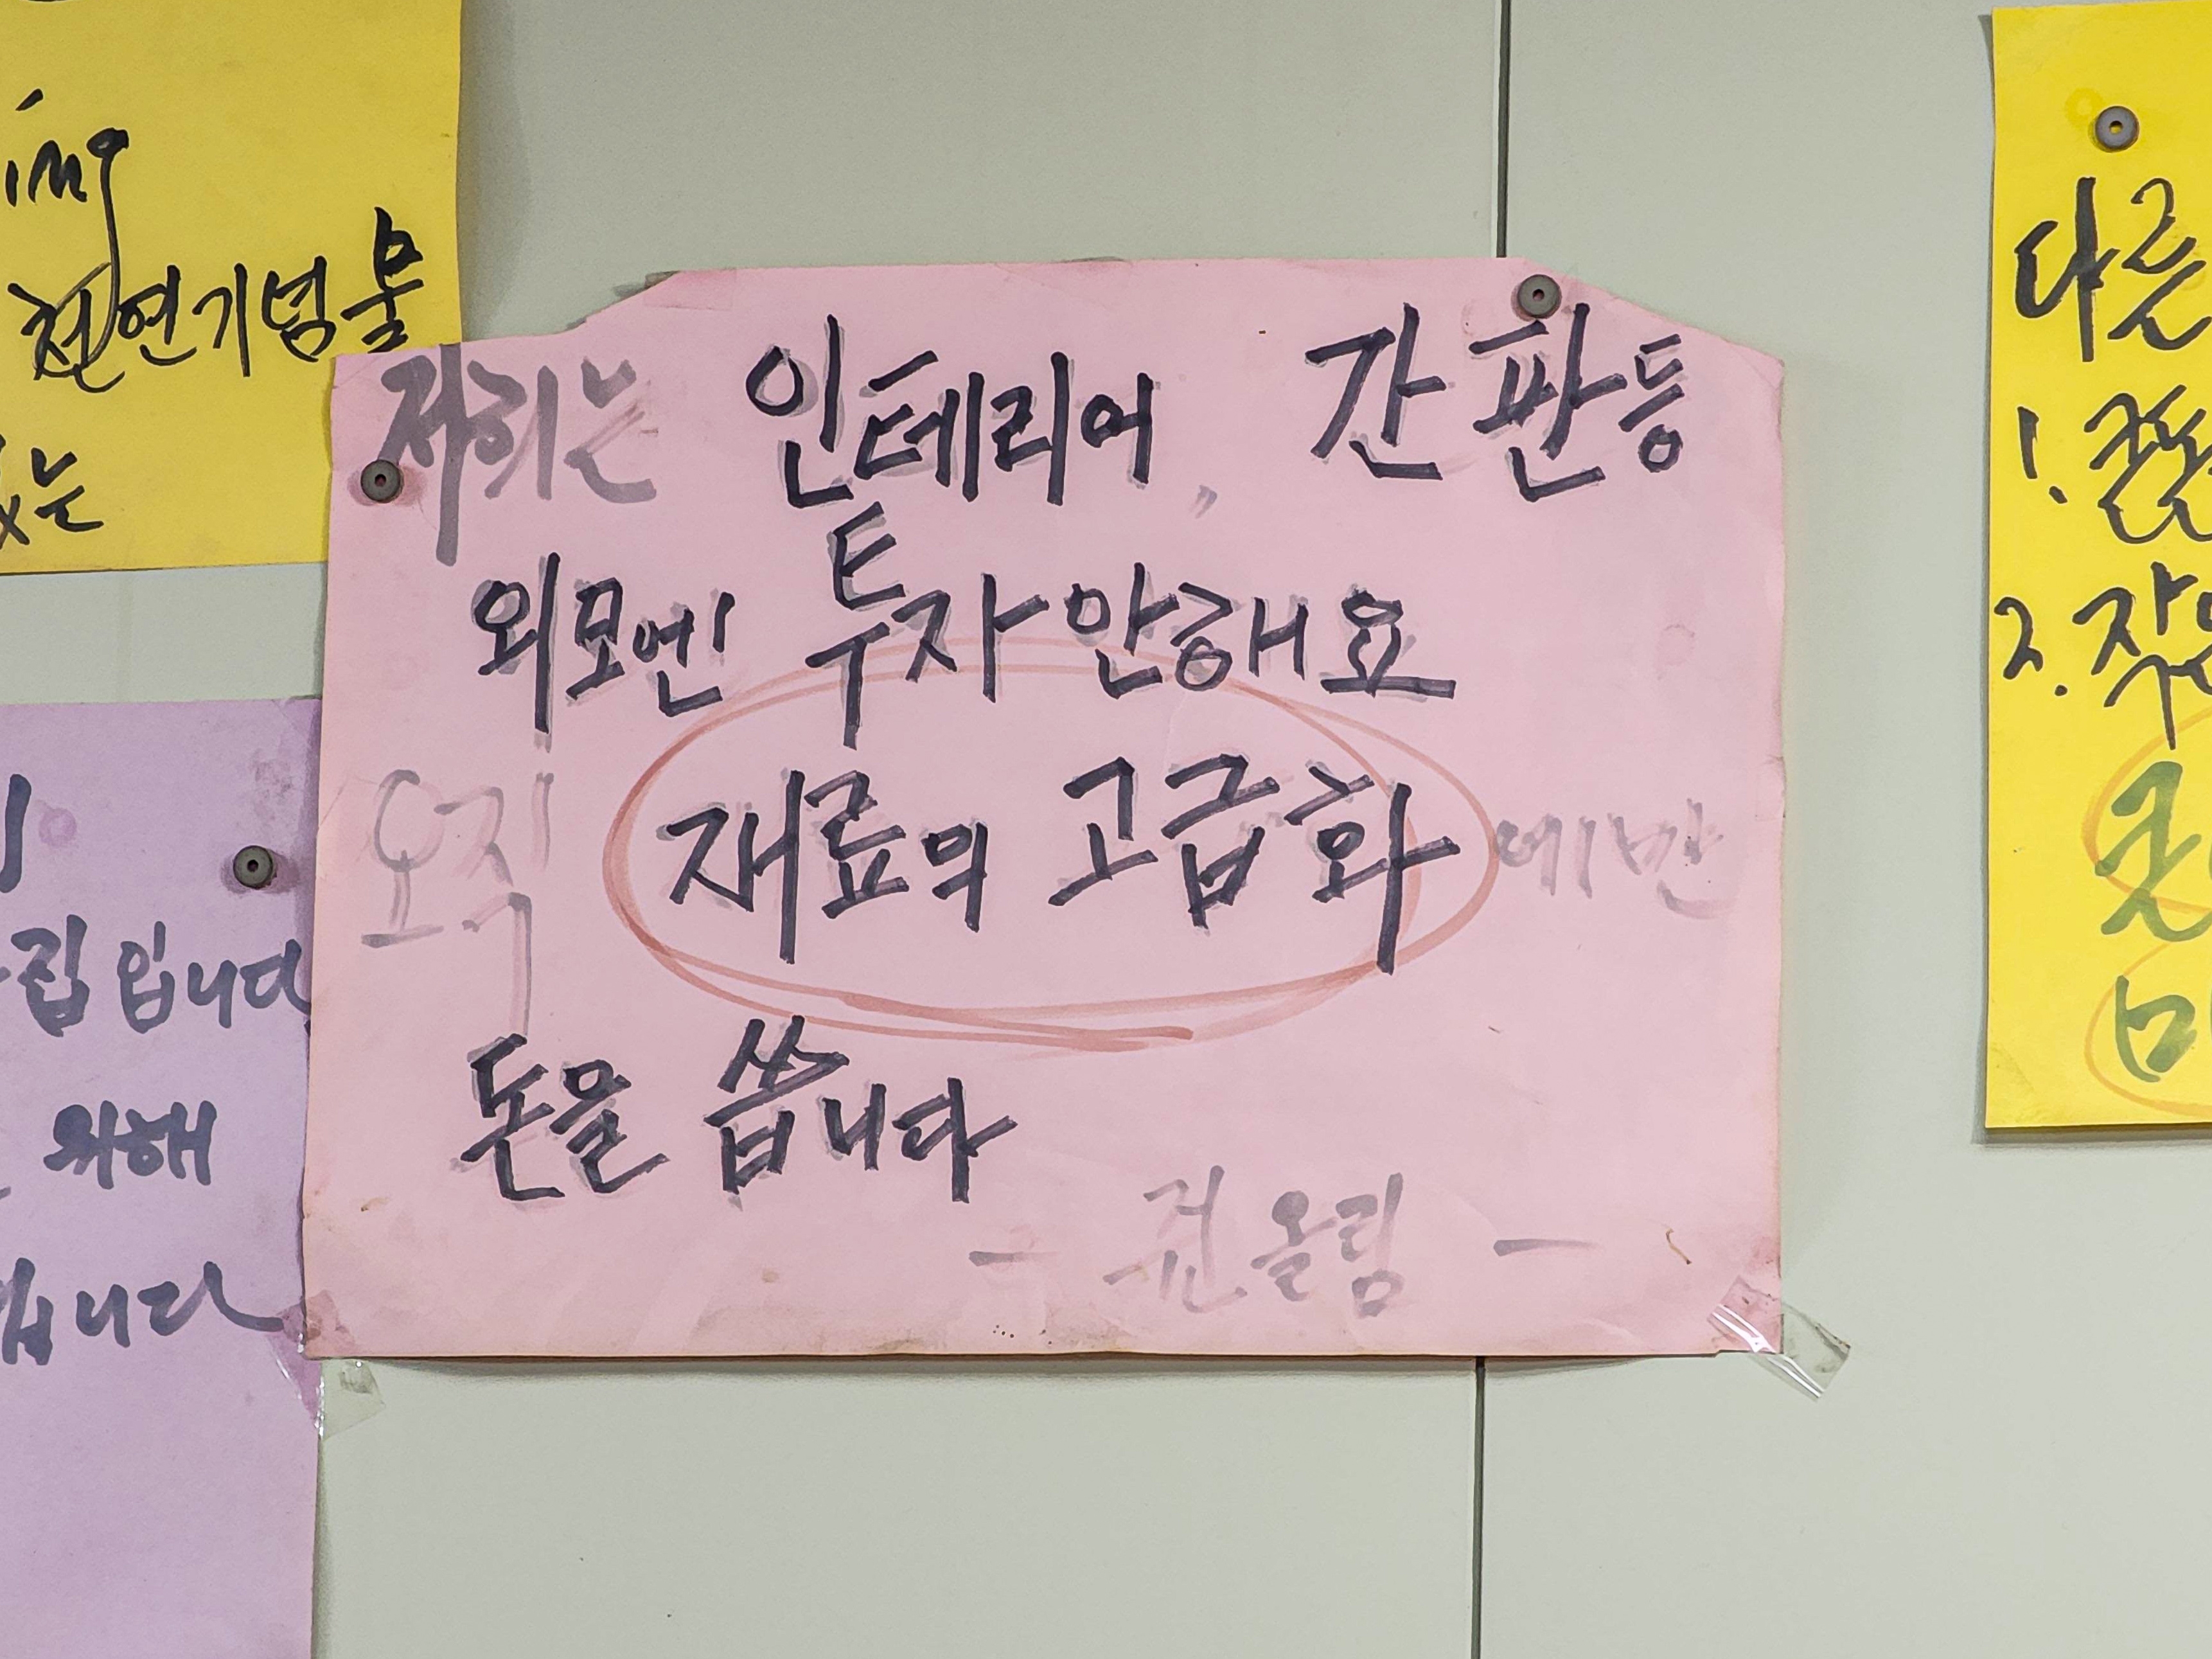 천연기념물
저희는 인테리어, 간판등
외모엔 투자 안해요
오직 재료의 고급화 에만
돈을 씁니다
- 권올림 -
입니다
위해
다른
1.
2.